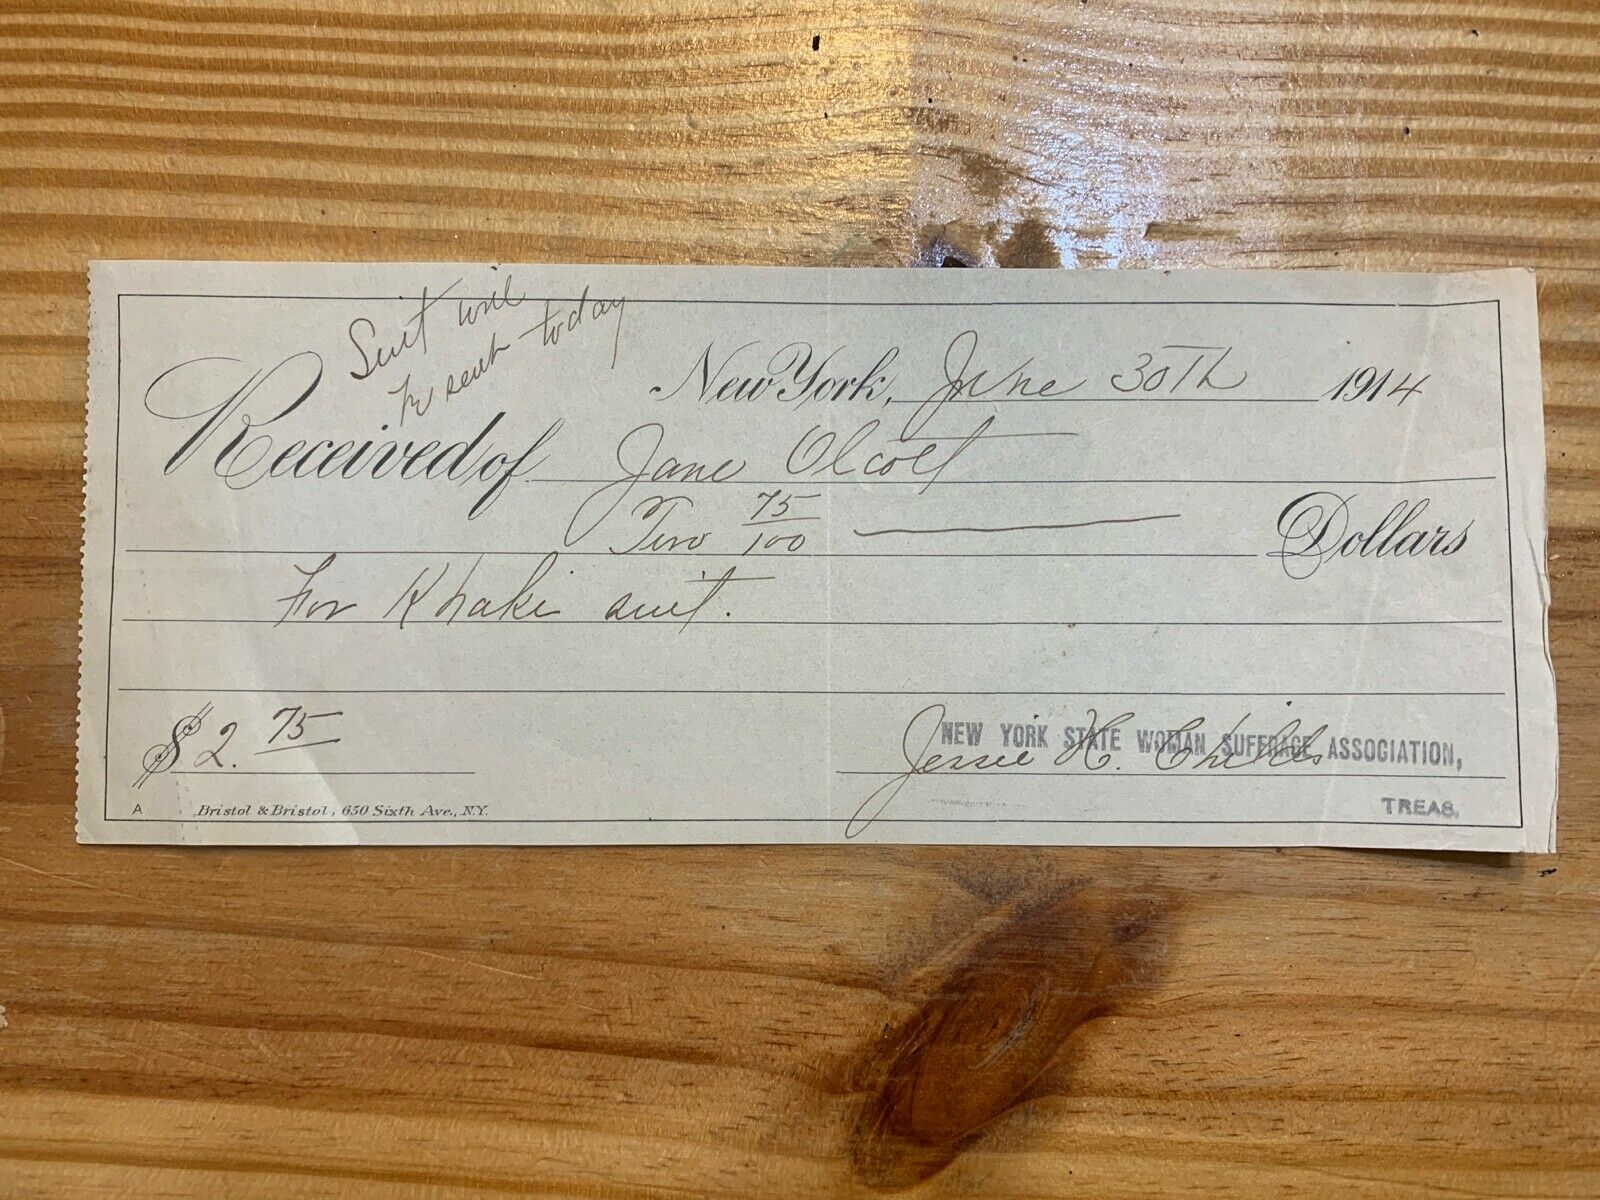 Suit will
be sent today
New York, June 30Th 1914
Received of Jane Olcott
Two 75/100 Dollars
For Khaki suit.
$ 2. 75
NEW YORK STATE WOMAN SUFFRAGE ASSOCIATION,
Jessie H. Childs
TREAS.
A Bristol & Bristol, 650 Sixth Ave., N.Y.